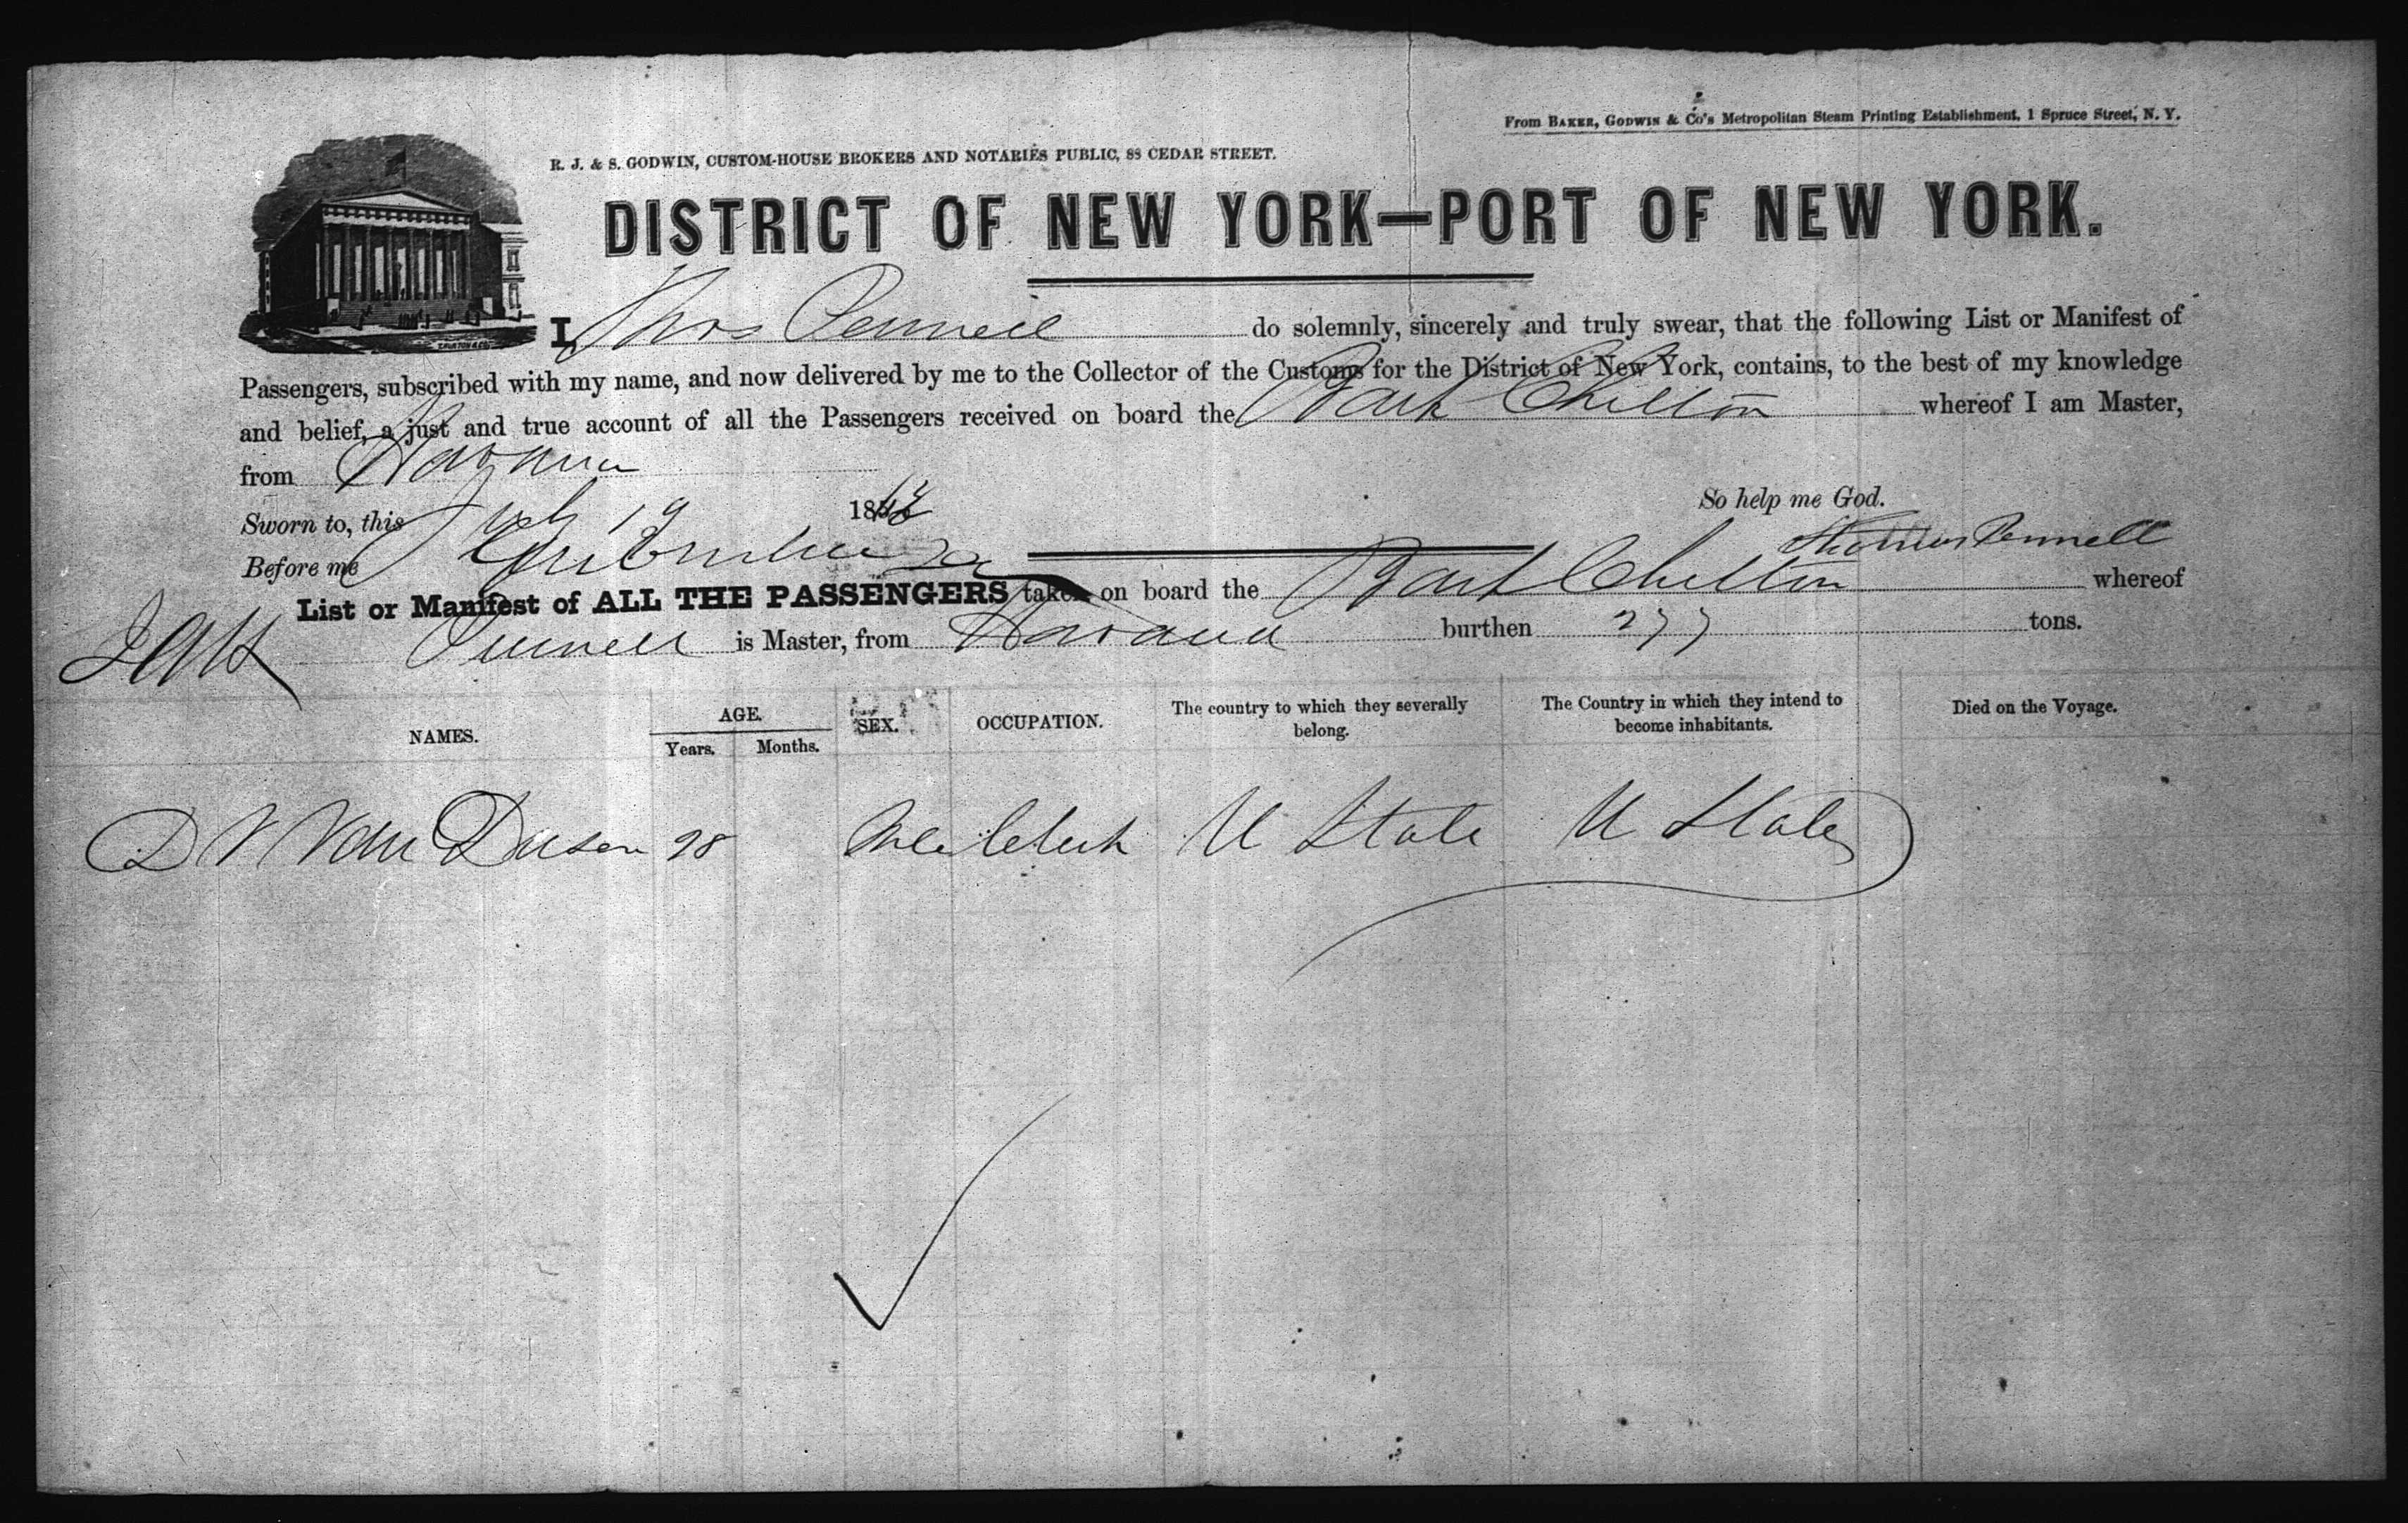 From BAKER, GODWIN & Co's Metropolitan Steam Printing Establishment, 1 Spruce Street, N. Y.
R. J. & S. GODWIN, CUSTOM-HOUSE BROKERS AND NOTARIES PUBLIC, 88 CEDAR STREET.
DISTRICT OF NEW YORK—PORT OF NEW YORK.
I, Thos Pennell do solemnly, sincerely and truly swear, that the following List or Manifest of
Passengers, subscribed with my name, and now delivered by me to the Collector of the Customs for the District of New York, contains, to the best of my knowledge
and belief, a just and true account of all the Passengers received on board the Bark Chilton whereof I am Master,
from Havana
Sworn to, this 19 18 So help me God.
Before me Thomas Pennell
List or Manifest of ALL THE PASSENGERS taken on board the Bark Chilton whereof
Pennell is Master, from Havana burthen 277 tons.
NAMES. AGE. Years. Months. SEX. OCCUPATION. The country to which they severally belong. The Country in which they intend to become inhabitants. Died on the Voyage.
D V Van Dusen 28 Male Clerk U State U States